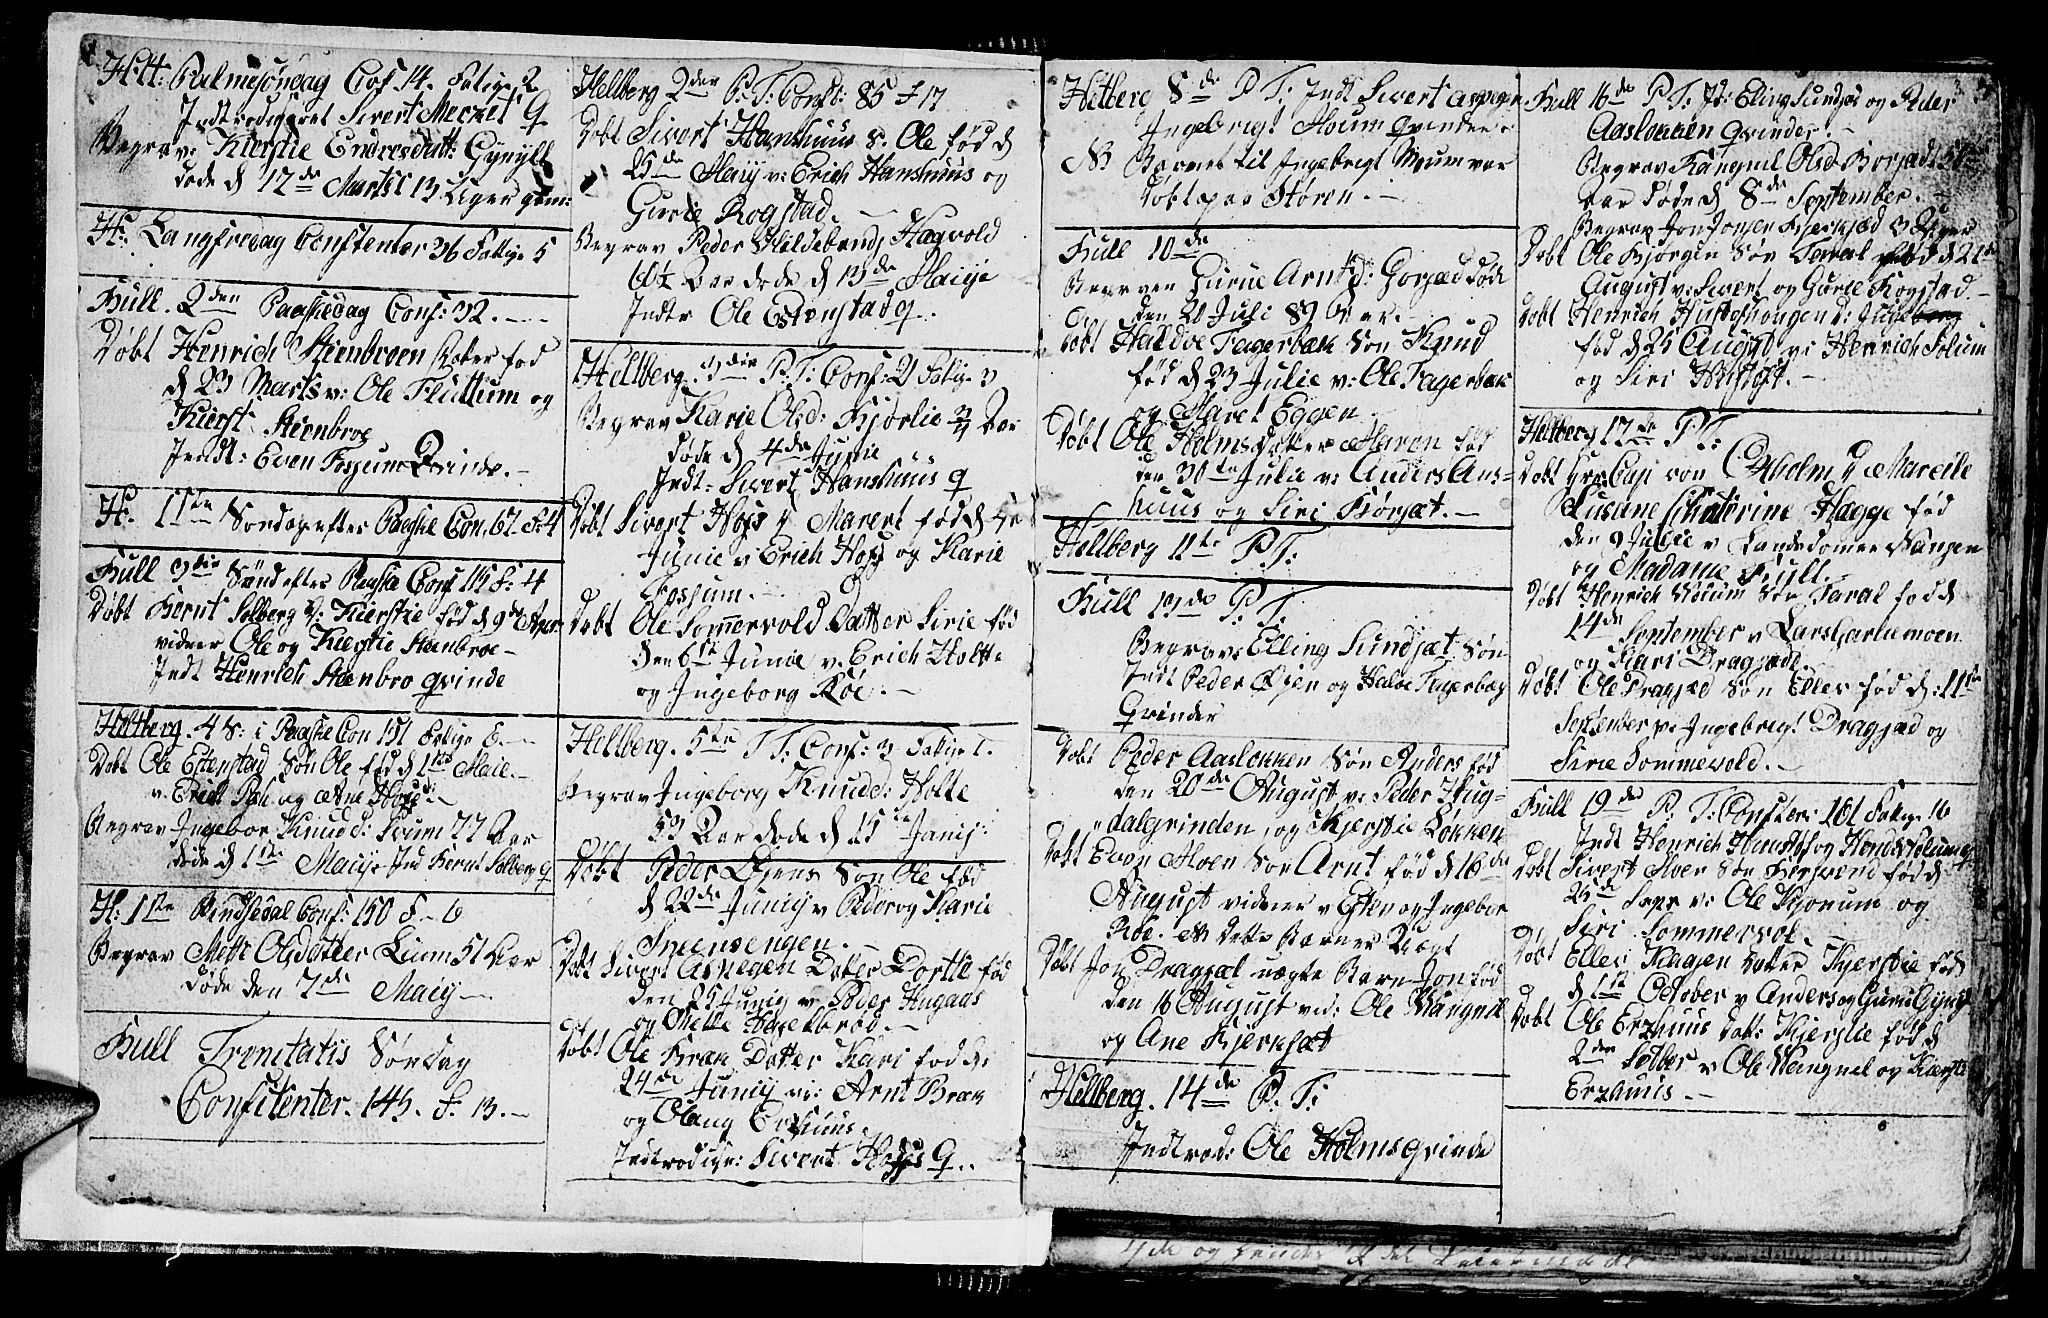 H:H: Palmesöndag Cof 14. Fattige 2
Indtrodiseret Sivert Merket Q
Begrav: Kierstie Endresdatt: Gynyll
døde d 12de Martsi 13 Uger gam:
H: Langfredag Confitenter 36 Fattige 5
Hull. 2den Paaskedag Conf: 32.
Døbt Henrich Steenbroen Dotter fød
d 23 Marts v: Ole Flattum og
Kierst. Steenbroe
Indt: Even Fossum Qvinde.
H. 1ste Søndag efter Paaske Con. 67. F: 4
Hull 3die Sønd efter Paaske Conf 115 F: 4
Døbt Bernt Solberg D: Kierstie fød d 9de Apr:
vidner Ole og Kierstie Steenbroe
Indt Henrich Steenbro qvinde
Heltberg. 4 S: e Paaske Con 151 Fattige 6.
Døbt Ole Estenstad Søn Ole fød d 1ste Maie.
v: Erich og Ane
Begrav Ingebor Knudd: 77 Aar
døde d 1ste Maij Ind Bernt Solberg Q
H: 1ste Pindsedal Conf: 150 F. 6
Begrav Mette Olsdatter Lium 51 Aar
døde den 7de Maij
Hull Trenitatis Søndag
Confitenter. 145. F. 13.
Helberg 2den P: T: Conf: 85 F 17
Døbt Sivert Hanshuus S. Ole fød d
25de Maij v: Erich Hanshuus og
Gurie Rogstad.
Begrav Peder Hildebrands Hagvold
60½ Aar døde d 13de Maije
Indtr Ole Estenstad q.
Helberg. 3die P: T: Conf: 21 Fattige 3
Begrav Karie Olsd: Kjørlie ¾ Aar
døde d 4de Junie
Indt: Sivert Hanshuus q
Døbt Sivert Hofs D Marert fød d
Junie v Erich Hofs og Karie
Fossum.
Døbt Ole Sommervold Datter Sirie fød
den 6te Junie v. Erich Holte
og Ingeborg Røe.
Helberg. 5te T T. Conf: 3 Fattige 1.
Begrav Ingeborg Knudd: Holte
53 Aar døde d 15te Junij:
Døbt Peder Øiens Søn Ole fød
d 22de Junij v Peder og Karie
Sneensengen.
Døbt Sivert Aspegen Dotter Dorthe fød
den 25 Junij v Peder Hugaas
og Mette Hagelbrød.
Døbt Ole Bræk Dotter Kari fød d:
24de Junij v: Arnt Bræk
og Olaug Erzhuus
Indtrodise: Sivert Hofs Q.
Heltberg 8de P T: Indt Sivert aspegen
Ingebrigt Moum qvinder
NB Barnet til Ingebrigt Moum var
døbt paa Støren.
Hull 10de
Begraven Gurie Arntd: Gorsæd død
den 20 Juli 89 Aar.
Døbt Haldoe Fagerbæk Søn Knud
fød d 23 Julie v: Ole Fagerbæk
og Maret Eggen
Døbt Ole Holms Datter Maren fød
den 30te Julie v: Anders Aus-
huus og Siri Kørsæt.
Helberg 11te P. T:
Hull 13de P. T.
Begrav: Elling Sundsæt Søn
Indt Peder Øien og Haldoe Fagerbæg
Qvinder
Døbt Peder Aasløkken Søn Anders fød
den 20de August v: Peder Hug-
dalqvinden, og Kjerstie Løkken
Døbt Even Moen Søn Arnt fød d 16de
August vidner v Esten og Ingebor
Røe. NB dette Barnet Uægt
Døbt Jon Dragsæt uægte Barn Jon fød
den 16 August vid: Ole Wangnil
og Ane Bjerksæt
Helberg. 14de P. T:
Indtrod: Ole Holms qvinde
3.
Hull 16de P: T: Id: Eling Sundsæt og Peder
Aasløkken qvinder.
Begrav Rangnil Olsd Borsæd
Aar døde d 8de September.
Begrav Jon Jonsen Bjerksæd 3 Uger
Døbt Ole Bjørgen Søn Taral fød d 21de
August v: Sivert og Gurie Rogstad.
Døbt Henrich Hustofhougen D: Ingeborg
fød d 25 August v: Henrich Solum
og Siri Hustoft.
Heltberg 17de P T:
Døbt Hrr: Capi von Coxholm D Mareile
Susane Chaterine Hagge fød
den 3 Julie v Landsdomer Wangen
og Madame Bull.
Døbt Henrich Moum Søn Taral fød d
14de September v Lars Garliemoen
og Kari Dragsæde.
Døbt Ole Dragsæd Søn Eller fød d: 11te
September v: Ingebrigt Dragsæd og
Sirie Sommevold.
Hull 19de P. T: Confter: 161 Fattige 16
Indt Henrich Hustof og Hend: Solum q
Døbt Sivert Moen Søn fød d
25de Sepr v: Ole Kjorum og
Siri Sommervol.
Døbt Eller Klagjen Datter Kjerstie fød
d 1ste October v Anders og Guru Gynyl
Døbt Ole Erzhuus Dott: Kjerstie fød d
2den Octber v Ole Wangnel og Kierstie
Erzhuus.